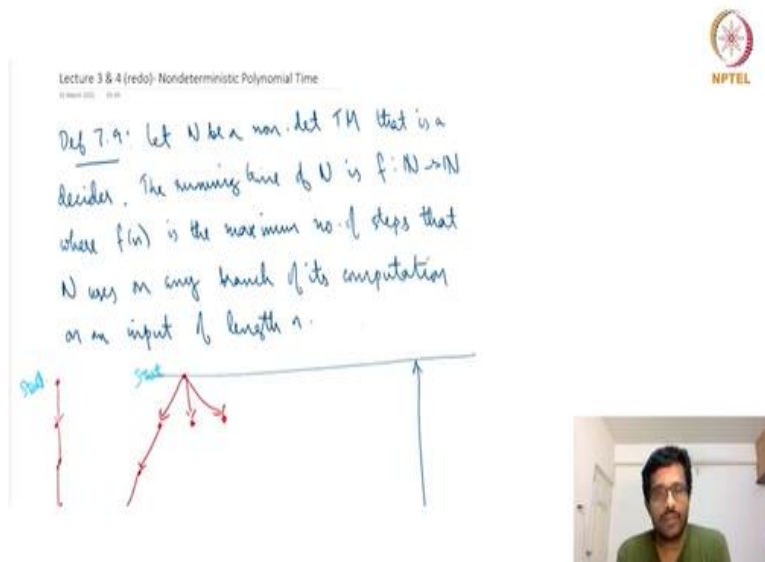 NPTEL
Lecture 3 & 4 (redo)- Nondeterministic Polynomial Time
Def 7.9: Let N be a non-det TM that is a
decider. The running time of N is f: N → N
where f(n) is the maximum no. of steps that
N uses on any branch of its computation
on an input of length n.
Start
Start